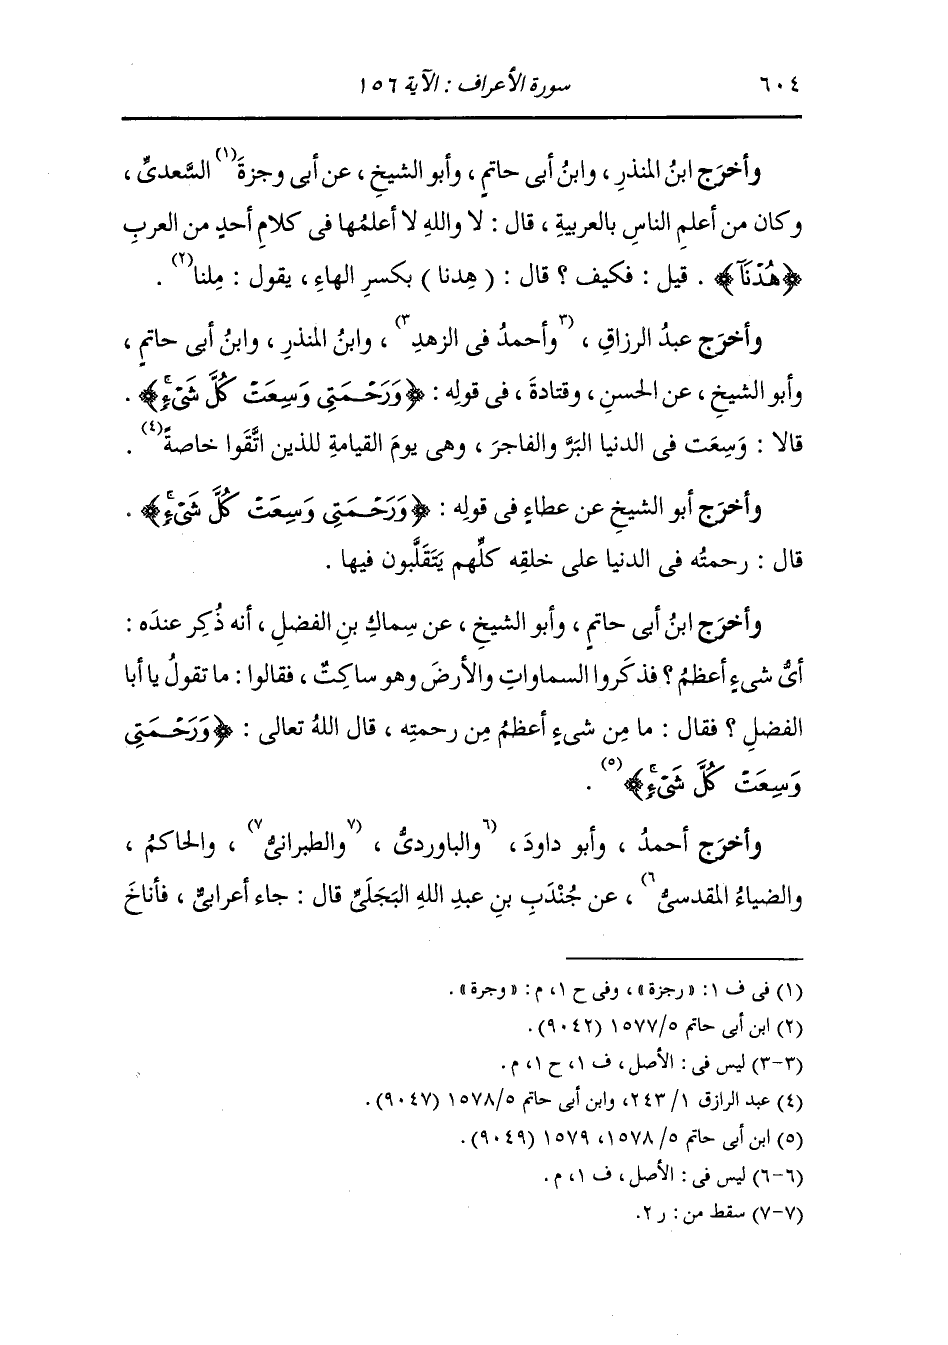 ٦٠٤ سورة الأعراف : الآية ١٥٦
وأخرَج ابنُ المنذرِ ، وابنُ أبى حاتمٍ ، وأبو الشيخِ ، عن أبى وجزةَ(١) السَّعدىِّ ،
وكان من أعلمِ الناسِ بالعربيةِ ، قال : لا واللهِ لا أعلمُها فى كلامِ أحدٍ من العربِ
﴿هُدْنَآ﴾ . قيل : فكيف ؟ قال : ( هِدنا ) بكسرِ الهاءِ ، يقول : مِلنا(٢) .
وأخرَج عبدُ الرزاقِ ، (٣وأحمدُ فى الزهدِ٣) ، وابنُ المنذرِ ، وابنُ أبى حاتمٍ ،
وأبو الشيخِ ، عن الحسنِ ، وقتادةَ ، فى قولِه : ﴿وَرَحْمَتِى وَسِعَتْ كُلَّ شَىْءٍۚ﴾ .
قالا : وَسِعَت فى الدنيا البَرَّ والفاجرَ ، وهى يومَ القيامةِ للذين اتَّقَوا خاصةً(٤) .
وأخرَج أبو الشيخِ عن عطاءٍ فى قولِه : ﴿وَرَحْمَتِى وَسِعَتْ كُلَّ شَىْءٍۚ﴾ .
قال : رحمتُه فى الدنيا على خلقِه كلِّهم يَتَقَلَّبون فيها .
وأخرَج ابنُ أبى حاتمٍ ، وأبو الشيخِ ، عن سِماكِ بنِ الفضلِ ، أنه ذُكِر عندَه :
أىُّ شىءٍ أعظمُ ؟ فذكَروا السماواتِ والأرضَ وهو ساكتٌ ، فقالوا : ما تقولُ يا أبا
الفضلِ ؟ فقال : ما مِن شىءٍ أعظمُ مِن رحمتِه ، قال اللهُ تعالى : ﴿وَرَحْمَتِى
وَسِعَتْ كُلَّ شَىْءٍۚ﴾(٥) .
وأخرَج أحمدُ ، وأبو داودَ ، (٦والباوردىُّ ، (٧والطبرانىُّ٧) ، والحاكمُ ،
والضياءُ المقدسىُّ٦) ، عن جُنْدَبِ بنِ عبدِ اللهِ البَجَلَىِّ قال : جاء أعرابىٌّ ، فأناخَ
(١) فى ف ١: «رجزة»، وفى ح ١، م: «وجرة».
(٢) ابن أبى حاتم ١٥٧٧/٥ (٩٠٤٢).
(٣-٣) ليس فى : الأصل، ف ١، ح ١، م.
(٤) عبد الرازق ١/ ٢٤٣، وابن أبى حاتم ١٥٧٨/٥ (٩٠٤٧).
(٥) ابن أبى حاتم ٥/ ١٥٧٨، ١٥٧٩ (٩٠٤٩).
(٦-٦) ليس فى : الأصل، ف ١، م.
(٧-٧) سقط من : ر ٢.